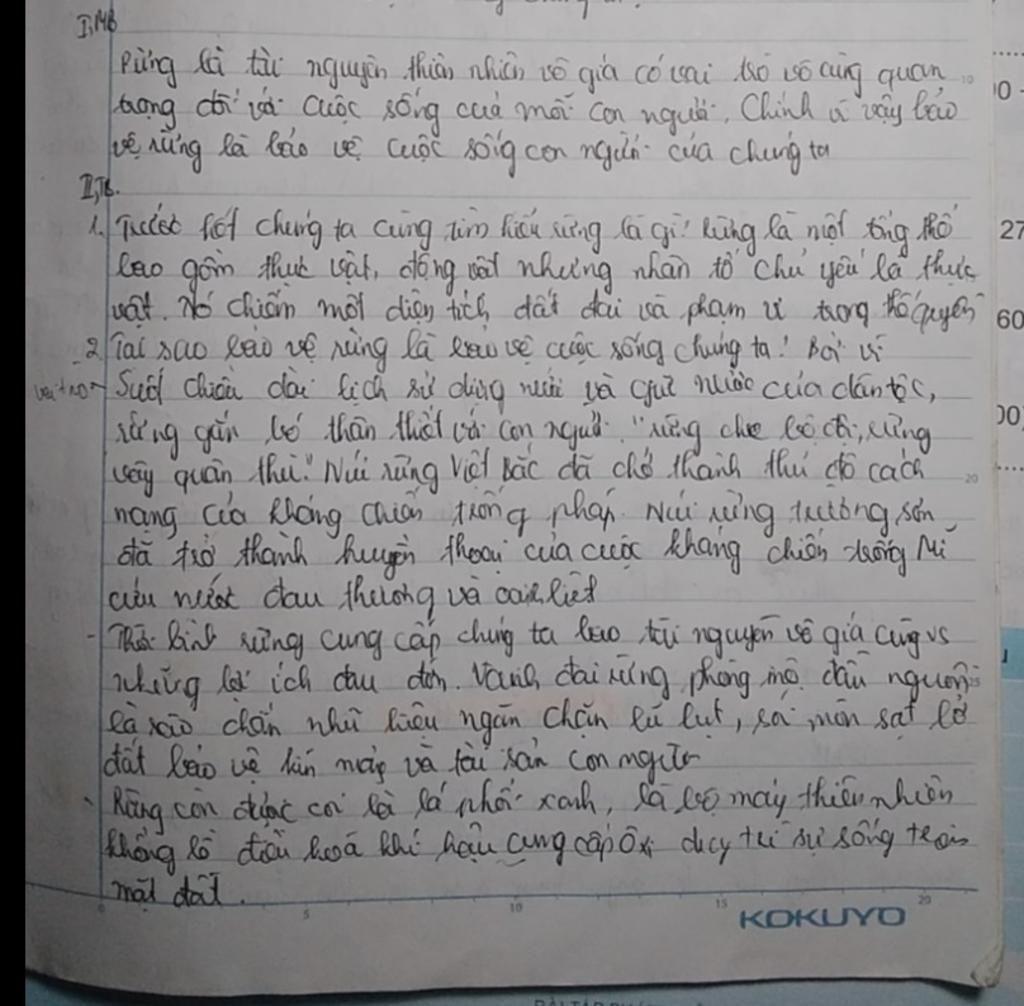 I, MB
Rừng là tài nguyên thiên nhiên vô giá có vai trò vô cùng quan
trọng đối với cuộc sống của mỗi con người. Chính vì vậy bảo
vệ rừng là bảo vệ cuộc sống con người của chúng ta
II, TB.
1. Trước hết chúng ta cùng tìm hiểu rừng là gì? Rừng là một tổng thể
bao gồm thực vật, động vật nhưng nhân tố chủ yếu là thực
vật. Nó chiếm một diện tích đất đai và phạm vi trong thổ quyển
2. Tại sao bảo vệ rừng là bảo vệ cuộc sống chúng ta? Bởi vì
vai trò - Suốt chiều dài lịch sử dựng nước và giữ nước của dân tộc,
rừng gắn bó thân thiết với con người. "rừng che bộ đội, rừng
vây quân thù". Núi rừng Việt Bắc đã chở thành thủ đô cách
mạng của kháng chiến trống pháp. Núi rừng trường sơn
đã trở thành huyền thoại của cuộc kháng chiến trống Mĩ
cứu nước đau thương và oanh liệt
- Thời bình rừng cung cấp chúng ta bao tài nguyên vô giá cùng vs
những lợi ích to lớn. Vành đai rừng phòng hộ đầu nguồn
là rào chắn hữu hiệu ngăn chặn lũ lụt, sói mòn sạt lở
đất bảo vệ tính mạng và tài sản con người
- Rừng còn được coi là lá phổi xanh, là bộ máy thiên nhiên
khổng lồ điều hoà khí hậu cung cấp Oxi duy trì sự sống trên
mặt đất.
0 5 10 15 20
KOKUYO
10
20
27
60